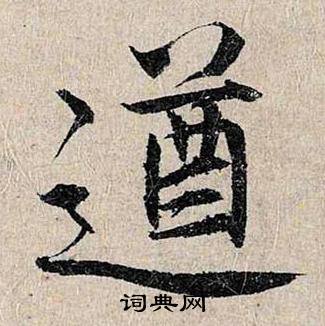 遒
词典网